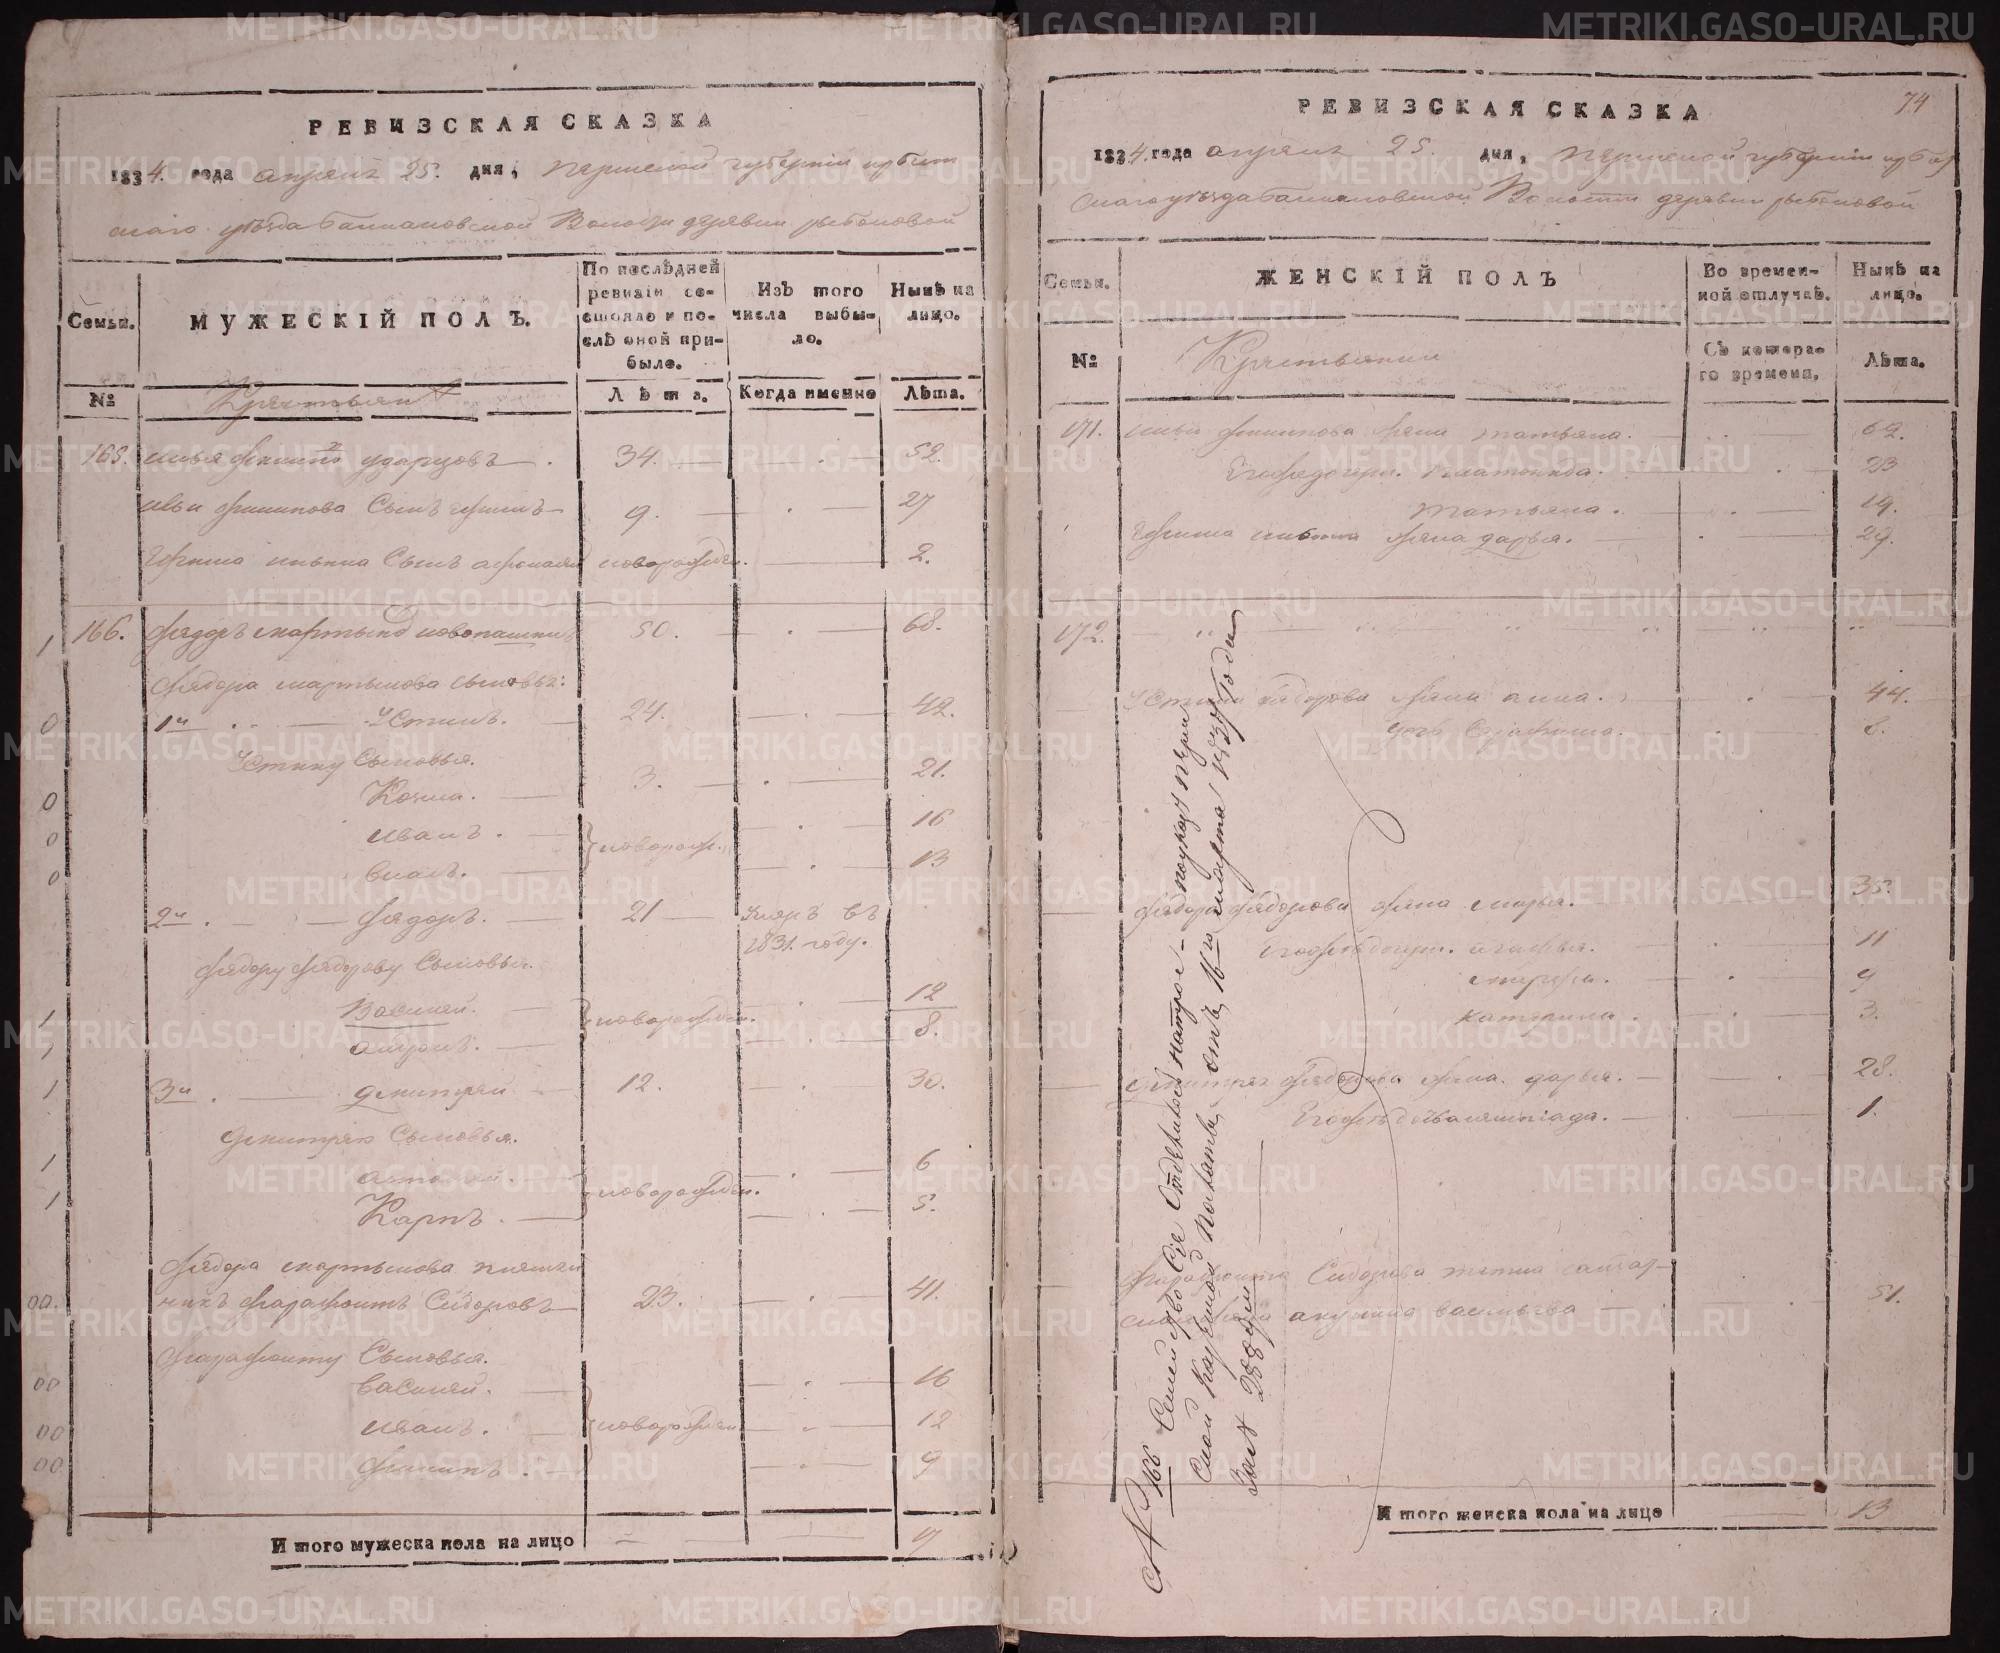 РЕВИЗСКАЯ СКАЗКА
1834. года апреля 25. дня, пермской губернии ирбит
скаго уезда баламановской Волости деревни рыбаковой
Семьи.
МУЖЕСКІЙ ПОЛЪ.
По послѣдней ревизіи состояло и послѣ оной прибыло.
Изъ того числа выбыло.
Нынѣ на лицо.
№
Крестьянъ
Лѣта.
Когда именно
Лѣта.
165. илья филипо ударцовъ 34. 52.
ильи филипова Сынъ ефимъ 9. 27
Ефима ильина Сынъ афонасей новорожден. 2.
1 166. федоръ мартыно новопашинъ 50. 68.
федора мартынова сыновья:
0 1й Устинъ. 24. 42.
Устину Сыновья.
0 Козма. 3. 21.
0 иванъ. новорож. 16
0 власъ. 13
2й федоръ. 21 умеръ въ
1831. году.
федору федорову Сыновья.
1 Василей. новорожден. 12
1 антонъ. 8.
1 3й дмитрей 12. 30.
дмитрею Сыновья.
1 новорожден. 6
1 Карпъ. 5.
федора мартынова племян
00. никъ фарафонтъ Сидоровъ 23. 41.
фарафонту Сыновья.
00 василей. 16
00 иванъ. новорожден 12
00 филипъ. 9
И того мужеска пола на лицо 17
74
РЕВИЗСКАЯ СКАЗКА
1834. года апреля 25. дня, пермской губернии ирбит
скаго уезда баламановской Волости деревни рыбаковой
Семьи.
ЖЕНСКІЙ ПОЛЪ
Во временной отлучкѣ.
Нынѣ на лицо.
№
Крестьянки
Съ котораго времени.
Лѣта.
171. ильи филипова жена татьяна. 62.
Его дочери. 23
татьяна. 19.
Ефима ильина жена дарья. 29.
172.
Устина федорова жена анна. 44.
дочь 8.
федора федорова жена марья. 35.
Его дочери. агафья. 11
марфа. 9
катерина. 3.
дмитрея федорова жена дарья. 28.
Его дочь 1.
фарафонта Сидорова жена
акулина васильева 51.
И того женска пола на лицо 13
№ 166 Семейство Сие по указу перм
Ской Казенной Палаты, отъ 16го марта Года
За № 2889м
METRIKI.GASO-URAL.RU